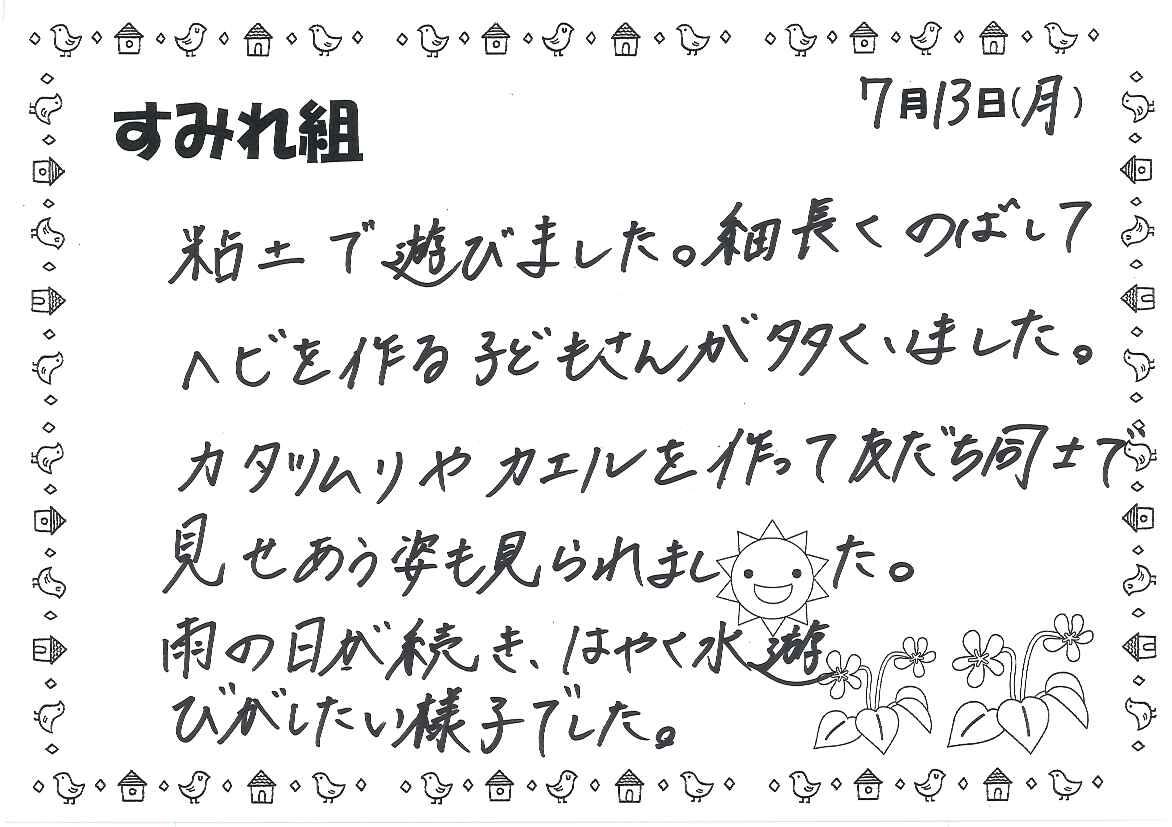 すみれ組
7月13日(月)
粘土で遊びました。細長くのばして
ヘビを作る子どもさんが多くいました。
カタツムリやカエルを作って友だち同士で
見せあう姿も見られました。
雨の日が続き、はやく水遊
びがしたい様子でした。